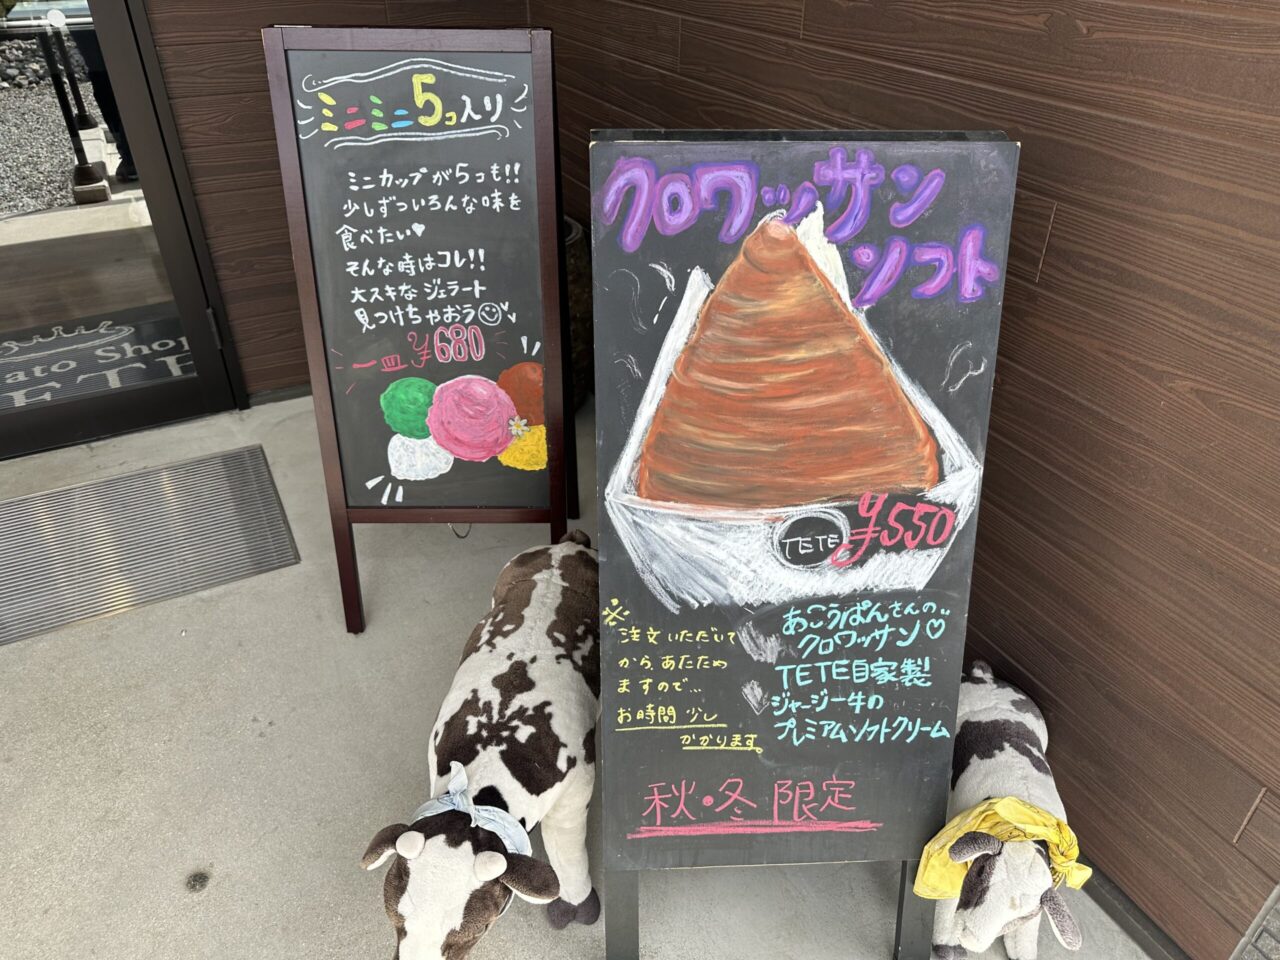 ミニミニ5コ入り
ミニカップが5つも!!
少しずついろんな味を
食べたい♥
そんな時はコレ!!
大スキなジェラート
見つけちゃおう
一皿 ¥680
クロワッサン
ソフト
TETE
¥550
※注文いただいて
からあたため
ますので…
お時間少し
かかります。
あこうぱんさんの
クロワッサン♡
TETE自家製
ジャージー牛の
プレミアムソフトクリーム
秋・冬限定
ato Shop